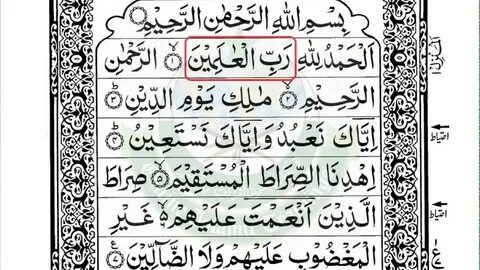 بِسْمِ اللهِ الرَّحْمٰنِ الرَّحِيْمِ
اَلْحَمْدُ لِلّٰهِ رَبِّ الْعٰلَمِيْنَ ۝١ الرَّحْمٰنِ
الرَّحِيْمِ ۝٢ مٰلِكِ يَوْمِ الدِّيْنِ ۝٣
اِيَّاكَ نَعْبُدُ وَاِيَّاكَ نَسْتَعِيْنُ ۝٤
احتیاط
اِهْدِنَا الصِّرَاطَ الْمُسْتَقِيْمَ ۝٥ صِرَاطَ
الَّذِيْنَ اَنْعَمْتَ عَلَيْهِمْ ۝٦ غَيْرِ
احتیاط
الْمَغْضُوْبِ عَلَيْهِمْ وَلَا الضَّآلِّيْنَ ۝٧